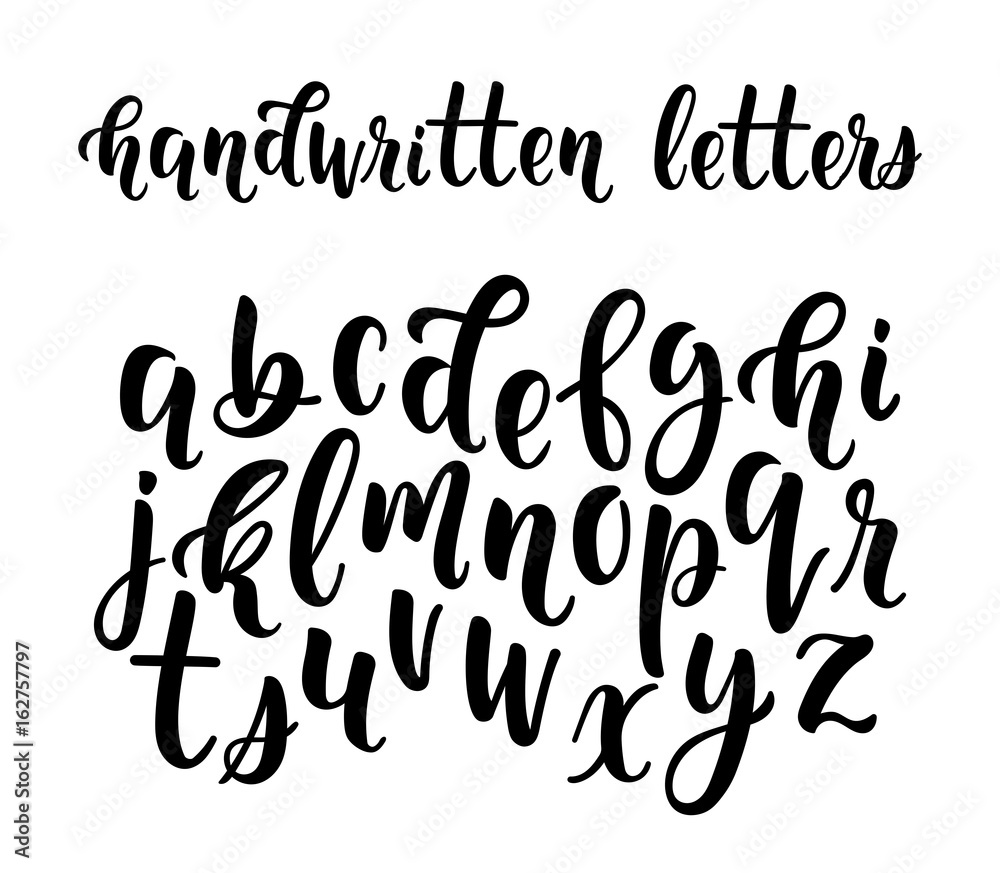 handwritten letters
a b c d e f g h i
j k l m n o p q r
t s u v w x y z
Adobe Stock | #162757797